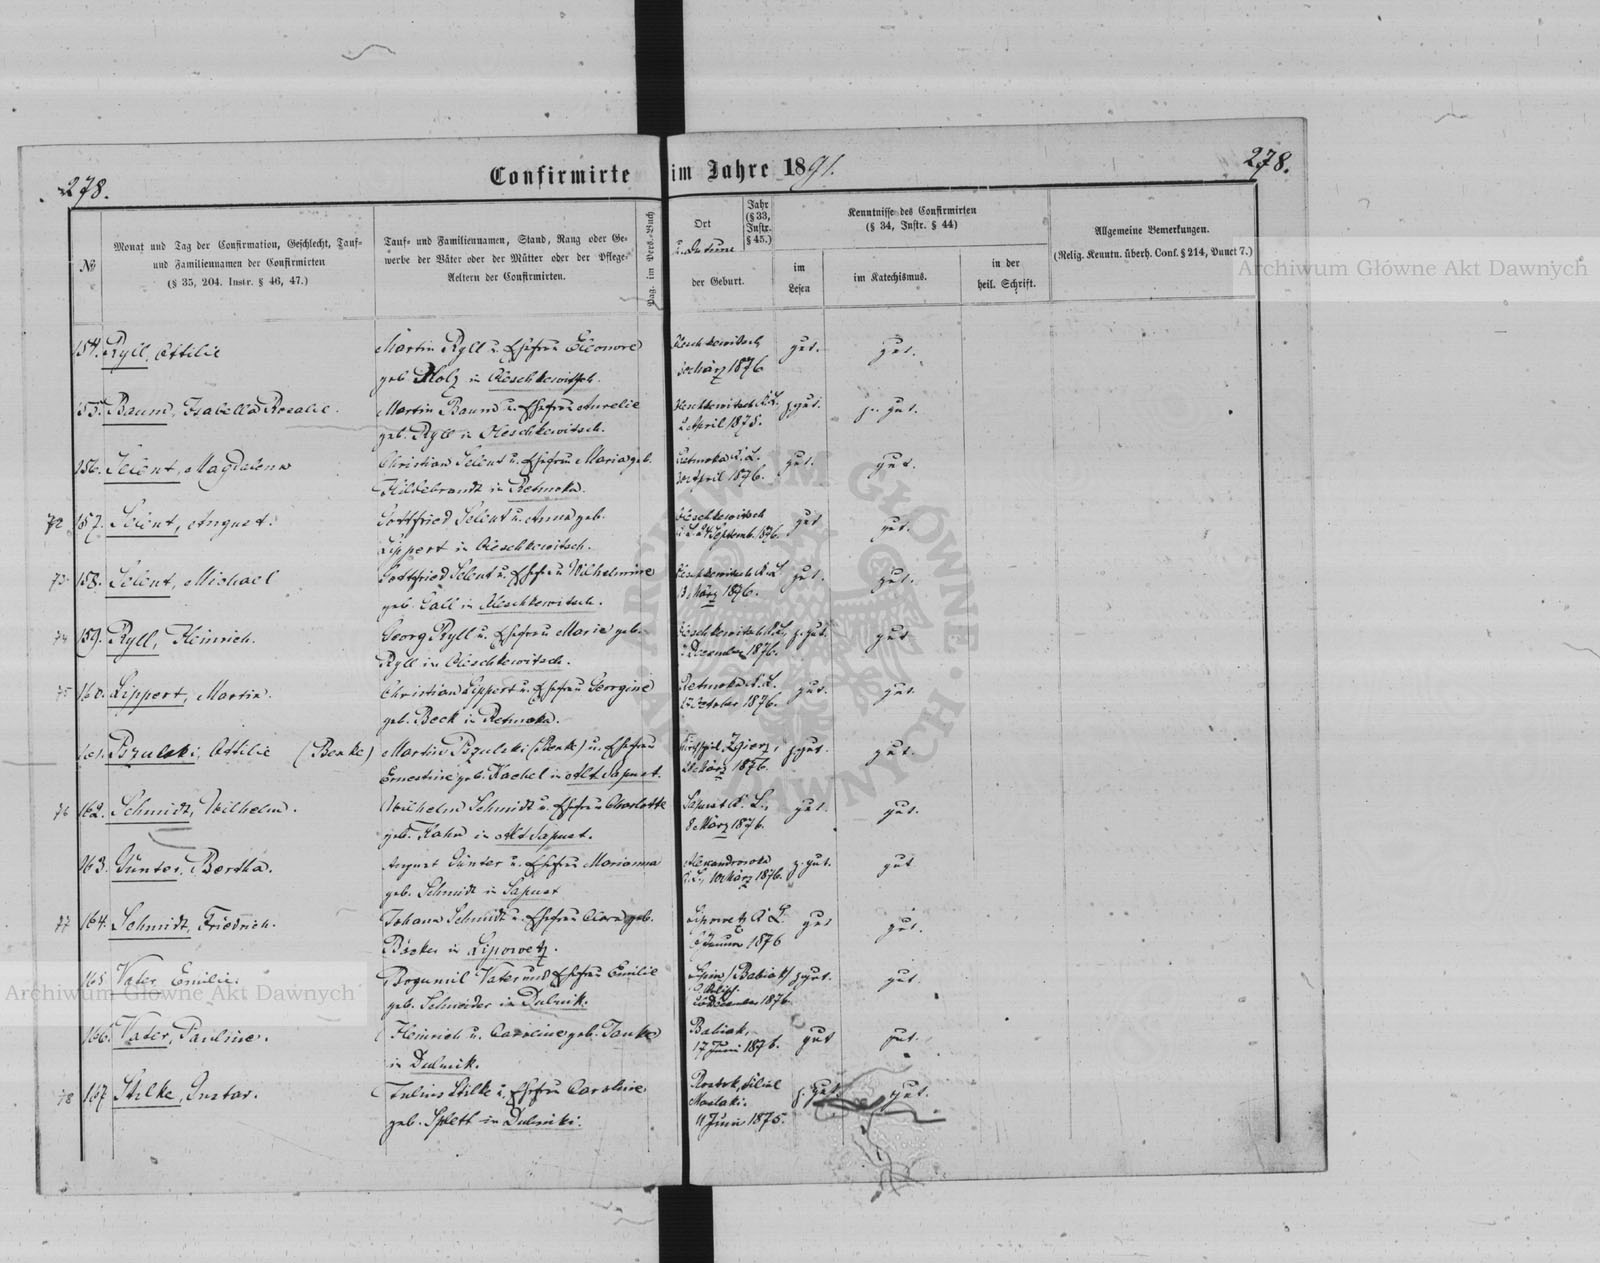 278.
Confirmirte im Jahre 1891.
278.
№
Monat und Tag der Confirmation, Geschlecht, Tauf-
und Familiennamen der Confirmirten
(§ 35, 204. Instr. § 46, 47.)
Tauf- und Familiennamen, Stand, Rang oder Ge-
werbe der Väter oder der Mütter oder der Pflege-
Aeltern der Confirmirten.
Pag. im Pers.-Buch
Ort
und Datum
der Geburt.
Jahr
(§ 33,
Instr.
§ 45.)
Kenntnisse des Confirmirten
(§ 34, Instr. § 44)
im
Lesen
im Katechismus.
in der
heil. Schrift.
Allgemeine Bemerkungen.
(Relig. Kenntn. überh. Conf. § 214, Punct 7.)
Archiwum Główne Akt Dawnych
154. Ryll, Ottilie
Martin Ryll u. Ehefrau Eleonore
geb. Holz in Oleschkewitsch.
Oleschkewitsch
März 1876
gut.
gut.
155. Baum, Isabella Rosalie.
Martin Baum u. Ehefrau Aurelie
geb. Ryll in Oleschkewitsch.
Oleschkewitsch K. L.
2 April 1875.
z. gut.
z. gut.
156. Selent, Magdalena
Christian Selent u. Ehefrau Maria geb.
Hildebrandt in Retmoka.
Retmoka K. L.
April 1876.
gut.
gut.
72 157. Selent, August.
Gottfried Selent u. Anna geb.
Lippert in Oleschkewitsch.
Oleschkewitsch
K. L. 24 Septemb. 1876.
gut
gut.
73 158. Selent, Michael
Gottfried Selent u. Ehefrau Wilhelmine
geb. Call in Oleschkewitsch.
Oleschkewitsch K. L.
März 1876.
gut.
gut.
74 159. Ryll, Heinrich.
Georg Ryll u. Ehefrau Marie geb.
Ryll in Oleschkewitsch.
Oleschkewitsch K. L.
December 1876.
z. gut.
gut
75 160. Lippert, Martin.
Christian Lippert u. Ehefrau Georgine
geb. Beck in Retmoka.
Retmoka K. L.
October 1876.
gut.
gut.
161. Pszulski, Ottilie (Benke)
Martin Pszulski (Benke) u. Ehefrau
Ernestine geb. Kachel in Alt Sapust.
Kirchspiel Zgierz,
28 März 1876.
z. gut.
gut.
76 162. Schmidt, Wilhelm.
Wilhelm Schmidt u. Ehefrau Charlotte
geb. Hahn in Alt Sapust.
Sapust K. L.,
8 März 1876.
gut.
gut.
163. Günter, Bertha.
August Günter u. Ehefrau Marianna
geb. Schmidt in Sapust
Alexandrowka
K. L., 10 März 1876.
z. gut.
gut
77 164. Schmidt, Friedrich.
Johann Schmidt u. Ehefrau Clara geb.
Bäcker in Lipowetz.
Lipowetz K. L.
Januar 1876
gut
gut.
165 Vater, Emilie.
Bogumil Vater und Ehefrau Emilie
geb. Schneider in Dulnik.
(Babiak)
December 1876.
z. gut.
gut.
Archiwum Główne Akt Dawnych
166. Vater, Pauline.
Heinrich u. Caroline geb. Janke
in Dulnik.
Babiak,
17 Juni 1876.
gut
gut.
78 167. Stelke, Gustav.
Julius Stelke u. Ehefrau Caroline
geb. Splett in Dulniki.
Rostok, Filial
Maslaki.
11 Juni 1875.
z. gut.
gut.
ARCHIWUM GŁÓWNE · AKT DAWNYCH ·